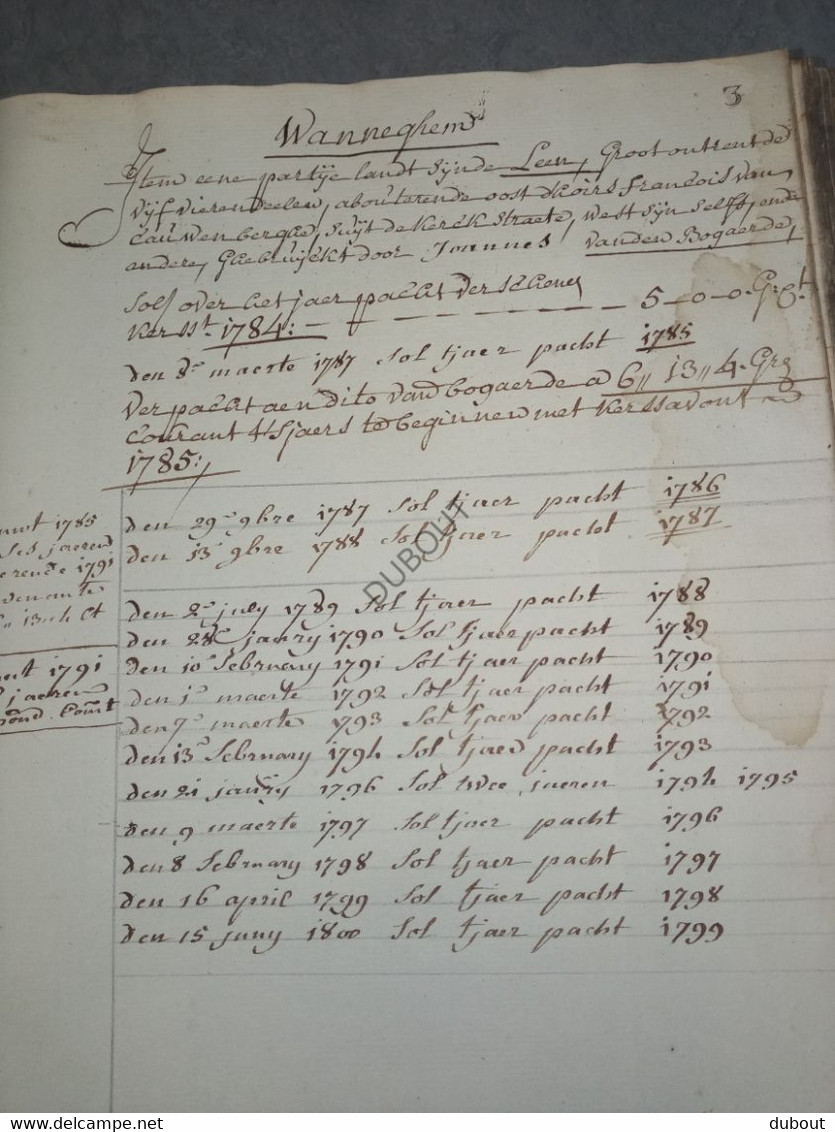 3
Wanneghem
Item eene partije landt sijnde Leen, Groot ontrent de
vijf vierendeelen, abouterende oost d'hoirs francois van
Cauwenberghe, suijt de kerck straete, west sijn selfs ende
andere, Ghebruijckt door Joannes vanden Bogaerde,
Solf over het jaer pacht verschenen
kersst. 1784: — 5-0-0 Grt.
den 8 maerte 1787 Sol tjaer pacht 1785
Verpacht aen dito vand bogaerde a 6,, 13,, 4 Grs
Courant tsjaers te beginnen met kerssavont
1785:,
den 29 9bre 1787 Sol tjaer pacht 1786
den 13 9bre 1788 Sol tjaer pacht 1787
den 2 july 1789 Sol tjaer pacht 1788
den 28 janry 1790 Sol tjaer pacht 1789
den 10 february 1791 Sol tjaer pacht 1790
den 1 maerte 1792 Sol tjaer pacht 1791
den 7 maerte 1793 Sol tjaer pacht 1792
den 13 february 1794 Sol tjaer pacht 1793
den 21 janry 1796 Sol twee jaeren 1794 1795
den 9 maerte 1797 Sol tjaer pacht 1796
den 8 february 1798 Sol tjaer pacht 1797
den 16 april 1799 Sol tjaer pacht 1798
den 15 juny 1800 Sol tjaer pacht 1799
1785
ses jaeren
1791
13 sch Ct
1791
jaeren
Cour.t
DUBOUT
www.delcampe.net
dubout